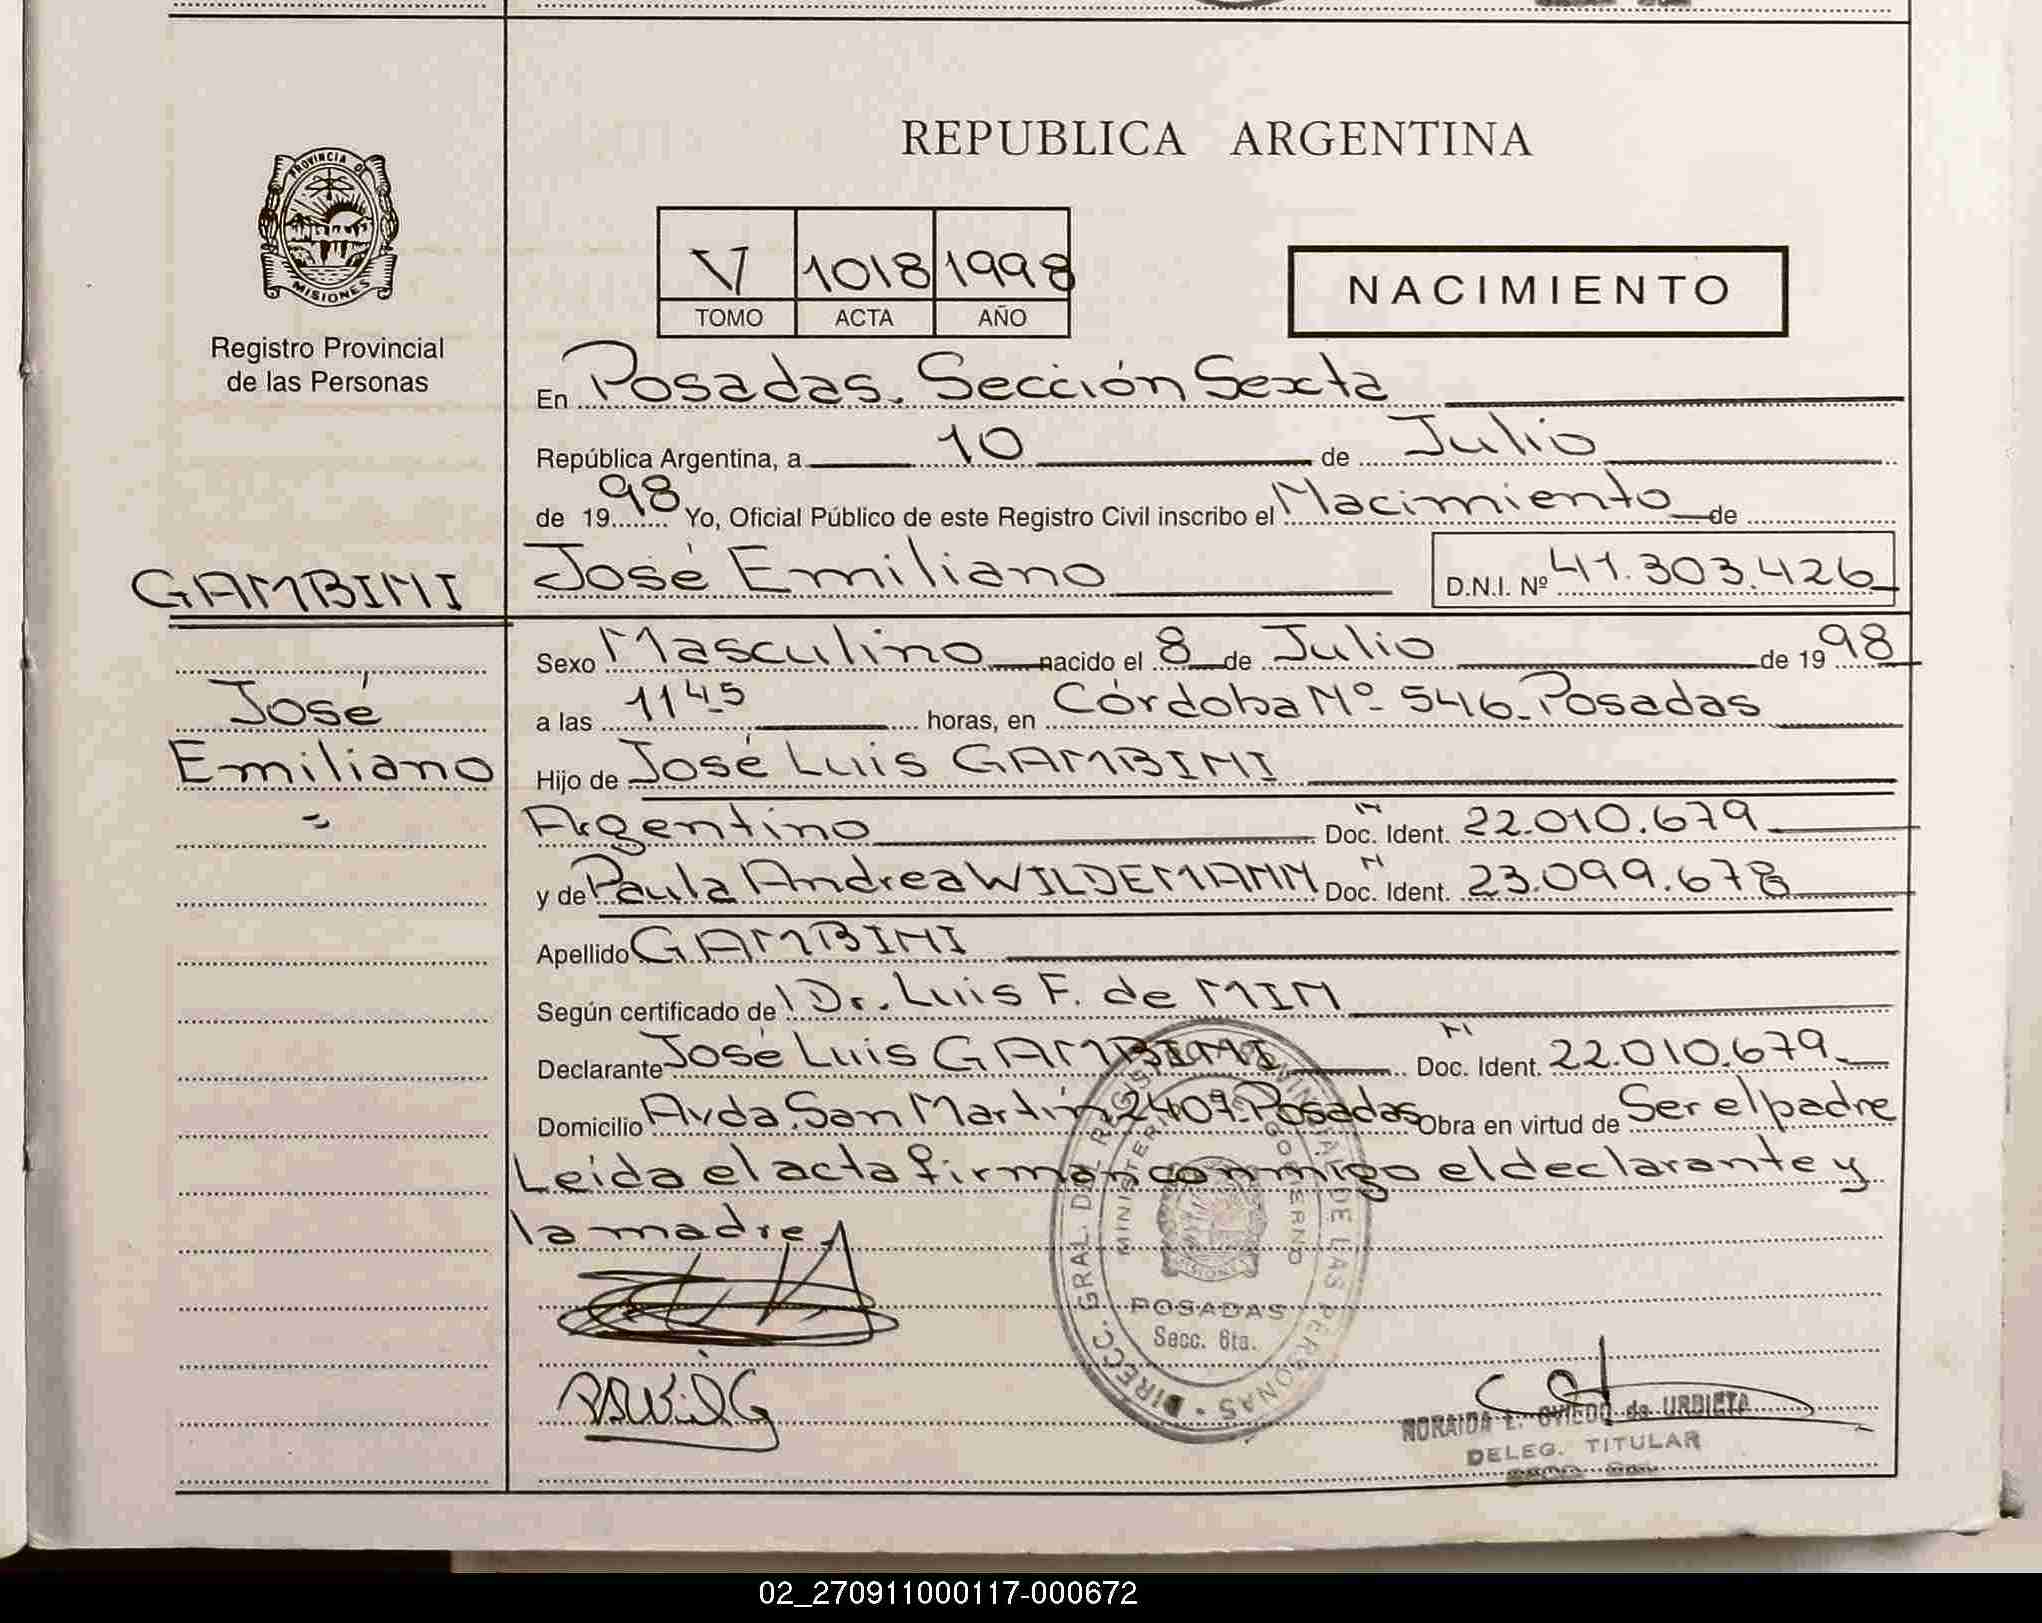 REPUBLICA ARGENTINA
PROVINCIA DE
MISIONES
Registro Provincial
de las Personas
V 1018 1998
TOMO ACTA AÑO
NACIMIENTO
En Posadas. Sección Sexta
República Argentina, a 10 de Julio
de 1998 Yo, Oficial Público de este Registro Civil inscribo el Nacimiento de
GAMBINI
José Emiliano D.N.I. Nº 41.303.426
Sexo Masculino nacido el 8 de Julio de 1998
José
a las 1145 horas, en Córdoba Nº 546-Posadas
Emiliano
Hijo de José Luis GAMBINI
Argentino Doc. Ident. 22.010.679
y de Paula Andrea WILDEMANN Doc. Ident. 23.099.678
Apellido GAMBINI
Según certificado de Dr. Luis F. de MIN
Declarante José Luis GAMBINI Doc. Ident. 22.010.679
Domicilio Avda. San Martín 2407-Posadas Obra en virtud de Ser el padre
Leida el acta firman conmigo el declarante y
la madre
DIRECC. GRAL. DEL REGISTRO PROVINCIAL DE LAS PERSONAS
MINISTERIO DE GOBIERNO
MISIONES
POSADAS
Secc. 6ta.
NORAIDA E. OVIEDO de URDIETA
DELEG. TITULAR
02_270911000117-000672